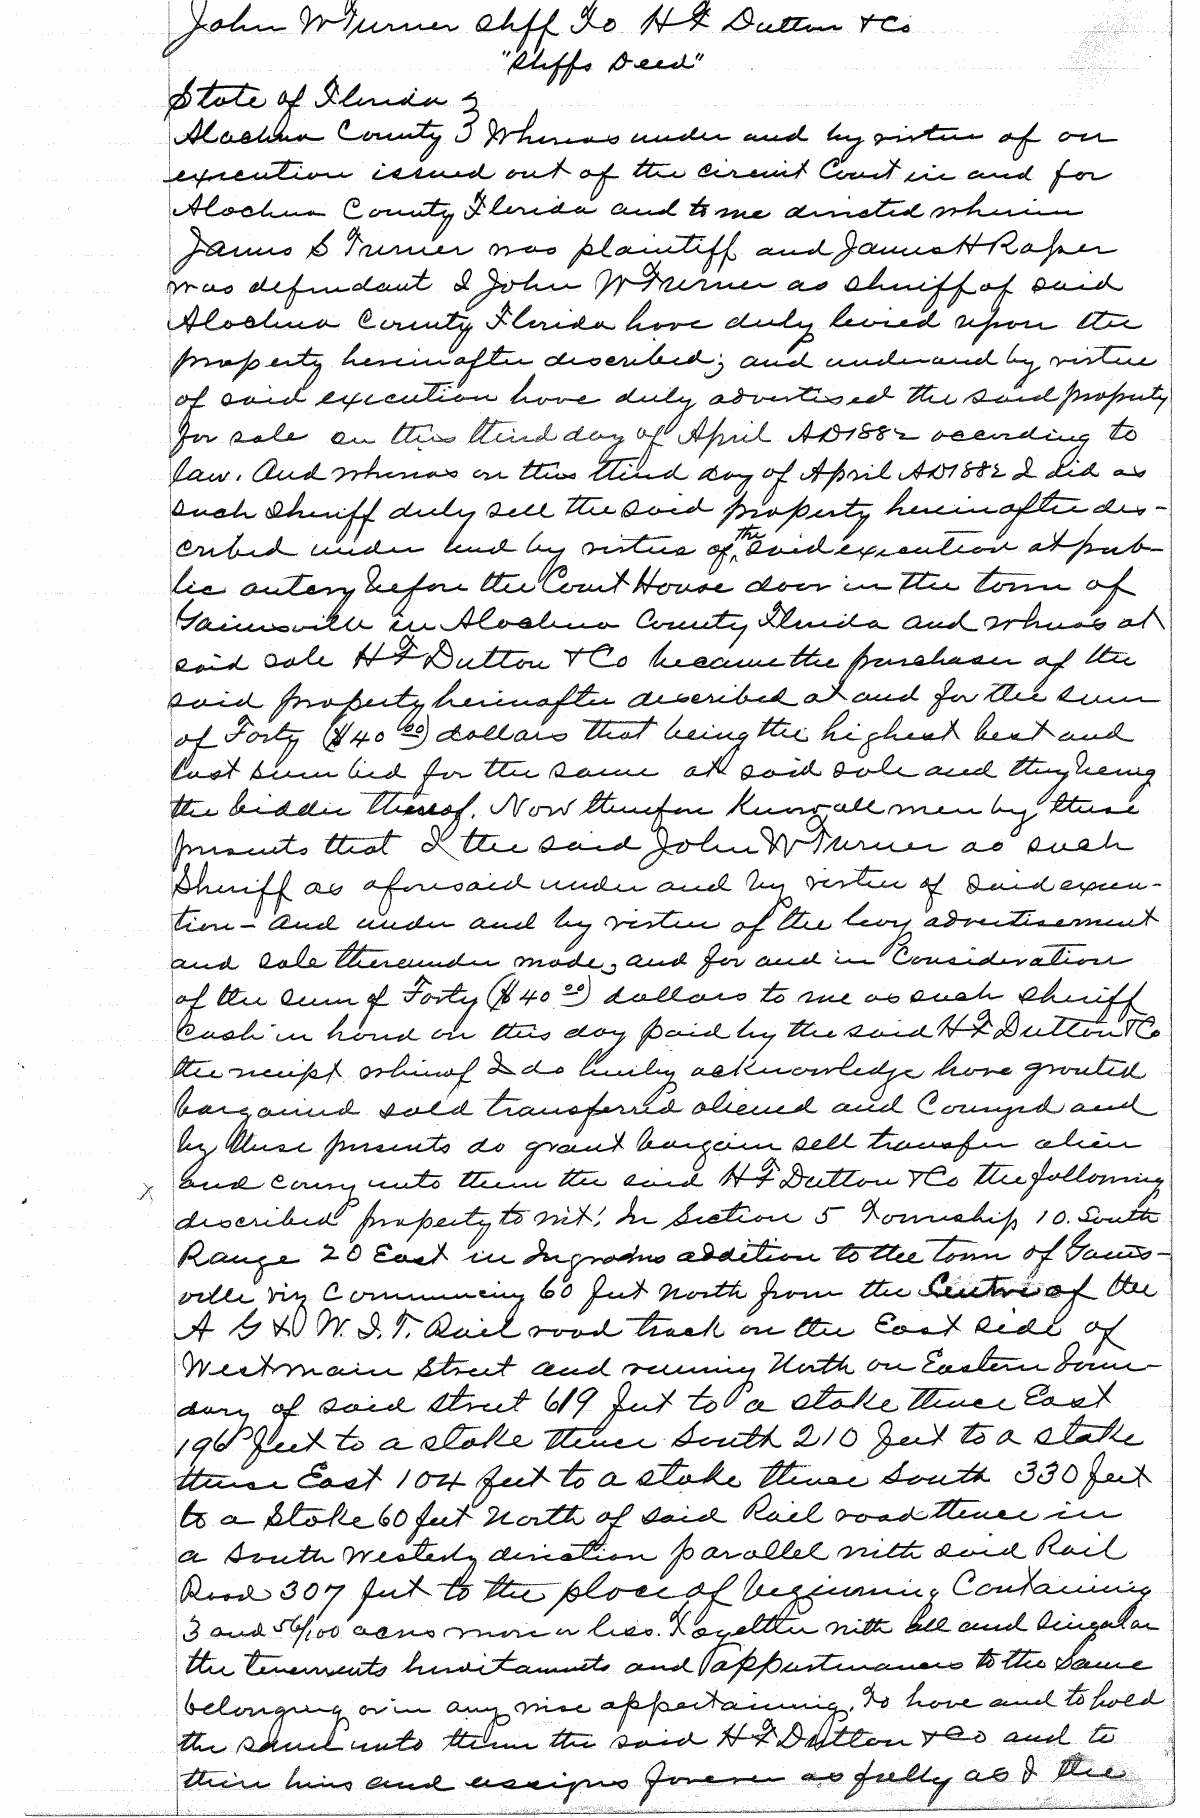 John W Turner Shff To H F Dutton & Co
"Shffs Deed"
State of Florida }
Alachua County } Whereas under and by virtue of an
execution issued out of the circuit Court in and for
Alachua County Florida and to me directed wherein
James S Turner was plaintiff and James H Roper
was defendant I John W Turner as sheriff of said
Alachua County Florida have duly levied upon the
property hereinafter described; and under and by virtue
of said execution have duly advertised the said property
for sale on this third day of April AD 1882 according to
law. And whereas on this third day of April AD 1882 I did as
such Sheriff duly sell the said property hereinafter des-
cribed under and by virtue of the said execution at pub-
lic outcry before the Court House door in the town of
Gainesville in Alachua County Florida and whereas at
said sale H F Dutton & Co became the purchaser of the
said property hereinafter described at and for the sum
of Forty ($40 00) dollars that being the highest best and
last sum bid for the same at said sale and they being
the bidder thereof. Now therefore Know all men by these
presents that I the said John W Turner as such
Sheriff as aforesaid under and by virtue of said execu-
tion - and under and by virtue of the levy advertisement
and sale thereunder made, and for and in Consideration
of the sum of Forty ($40 00) dollars to me as such sheriff
Cash in hand on this day paid by the said H F Dutton & Co
the receipt whereof I do hereby acknowledge have granted
bargained sold transferred aliened and Conveyed and
by these presents do grant bargain sell transfer alien
x and convey unto them the said H F Dutton & Co the following
described property to wit: In Section 5 Township 10. South
Range 20 East in Ingrams addition to the town of Gaines-
ville viz Commencing 60 feet North from the Centre of the
A G & W. I. T. Rail road track on the East side of
West main Street and running North on Eastern boun-
dary of said street 619 feet to a stake thence East
196 feet to a stake thence South 210 feet to a stake
thence East 104 feet to a stake thence South 330 feet
to a Stake 60 feet North of said Rail road thence in
a South Westerly direction parallel with said Rail
Road 307 feet to the place of beginning Containing
3 and 56/100 acres more or less. Together with all and singular
the tenements hereditaments and appurtenances to the Same
belonging or in any wise appertaining. To have and to hold
the same unto them the said H F Dutton & Co and to
their heirs and assigns forever as fully as I the